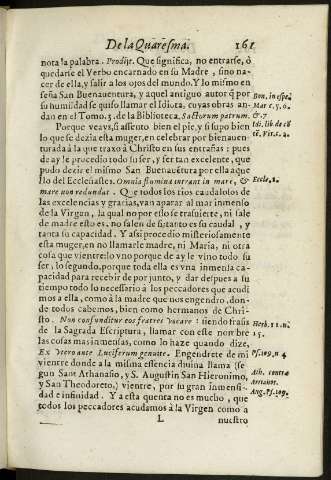 De la Quaresma. 161
nota la palabra. Prodijt. Que significa, no entrarse, ó
quedarse el Verbo encarnado en su Madre, sino na-
cer de ella, y salir à los ojos del mundo. Y lo mismo en
seña San Buenauentura, y aquel antiguo autor q̃ por
su humildad se quiso llamar el Idiota, cuyas obras an-
dan en el Tomo. 3. de la Biblioteca, Sanctorum patrum.
Porque veays, si assento bien el pie, y si supo bien
lo que se dezia esta muger, en celebrar por bienauen-
turada à la que traxo à Christo en sus entrañas; pues
de ay le procedio todo su ser, y ser tan excelente, que
pudo dezir el mismo San Buenauẽtura por ella aque
llo del Ecclesiastes. Omnia flumina intrant in mare, &
mare non redundat. Que todos los rios caudalosos de
las excelencias y gracias, van aparar al mar inmenso
de la Virgen, la qual no por esso se trasuierte, ni sale
de madre esto es. no salen de si: tanto es su caudal, y
tanta su capacidad. Y assi procedio misteriosamente
esta muger, en no llamarle madre, ni Maria, ni otra
cosa que vientre: lo vno porque de ay le vino todo su
ser, lo segundo, porque toda ella es vna inmensa ca-
pacidad para recebir de por junto, y dar despues a su
tiempo todo lo necessario à los peccadores que acudi
mos a ella, como à la madre que nos engendro, don-
de todos cabemos, bien como hermanos de Chri-
sto. Non confunditur eos fratres vocare: tiendo frasis
de la Sagrada Escriptura, llamar con este nombre
las cosas mas inmensas, como lo haze quando dize,
Ex vtero ante Luciferum genui te. Engendrete de mi
vientre donde a la misma essencia diuina llama (se
gun Sant Athanasio, y S. Augustin San Hieronimo,
y San Theodoreto,) vientre, por su gran inmensi-
dad e infinidad. Y a esta quenta no es mucho, que
todos los peccadores acudamos à la Virgen como a
L nuestro
Bon. in
Mar c. 5. o.
& 7
Eccle, 1.
Heb. 11. n.
15.
Ps. 109. n 4
Ath. contra
Arrianos.
Aug. Ps. 109.